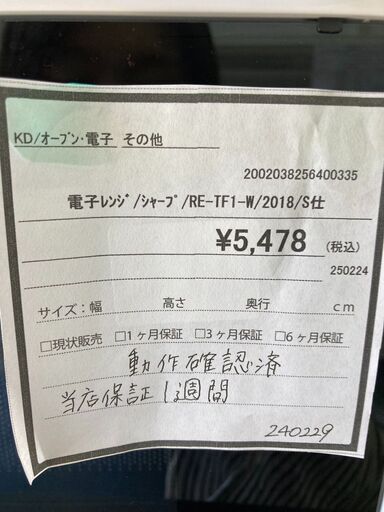 KD/オーブン・電子 その他
2002038256400335
電子ﾚﾝｼﾞ/ｼｬｰﾌﾟ/RE-TF1-W/2018/S仕
¥5,478 (税込)
250224
サイズ：幅 高さ 奥行 cm
□現状販売 □1ヶ月保証 □3ヶ月保証 □6ヶ月保証
動作確認済
当店保証1週間
240229